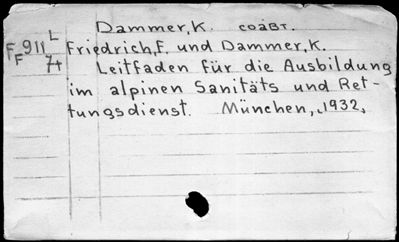 Dammer, K. соавт.
F F 911 L 7+ Friedrich, F. und Dammer, K.
Leitfaden für die Ausbildung
im alpinen Sanitäts und Ret-
tungsdienst. München, 1932,